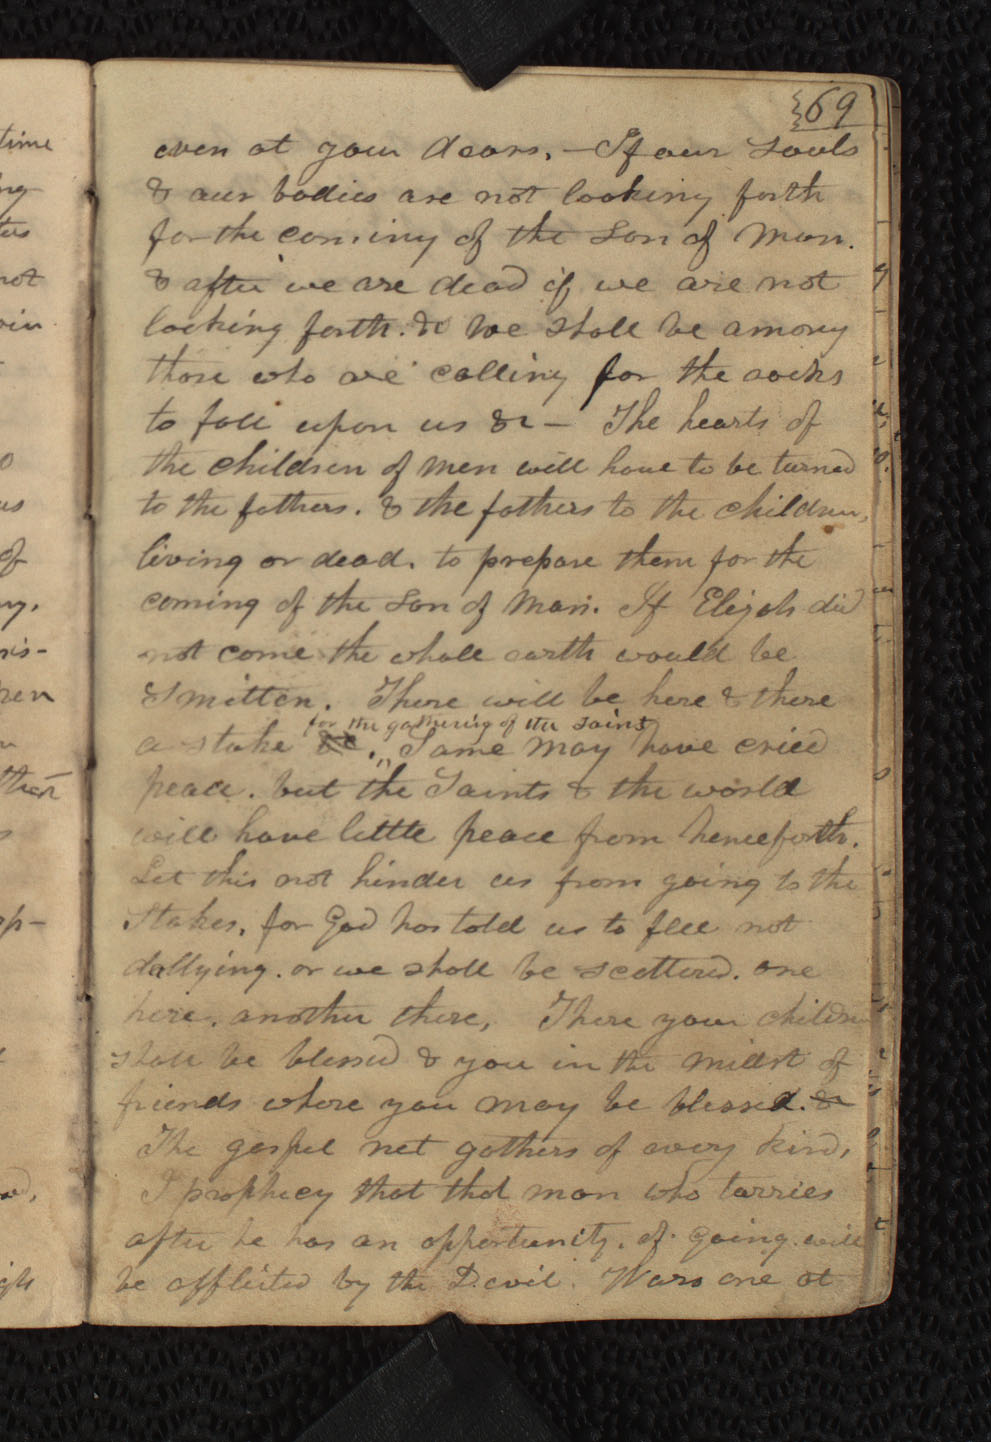 69
even at your doors. — If our souls
& our bodies are not looking forth
for the coming of the Son of Man.
& after we are dead if we are not
looking forth. &c we shall be among
those who are calling for the rocks
to fall upon us &c — The hearts of
the children of men will have to be turned
to the fathers. & the fathers to the children,
living or dead. to prepare them for the
coming of the Son of Man. If Elijah did
not come the whole earth would be
smitten. There will be here & there
for the gathering of the saints
a stake &c. Some may have cried
peace. but the Saints & the world
will have little peace from henceforth.
Let this not hinder us from going to the
Stakes, for God has told us to flee not
dallying. or we shall be scattered. one
here. another there, There your children
shall be blessed & you in the midst of
friends where you may be blessed. &c
The gospel net gathers of every kind,
I prophecy that that man who tarries
after he has an opportunity. of. going. will
be afflicted by the Devil. Wars are at